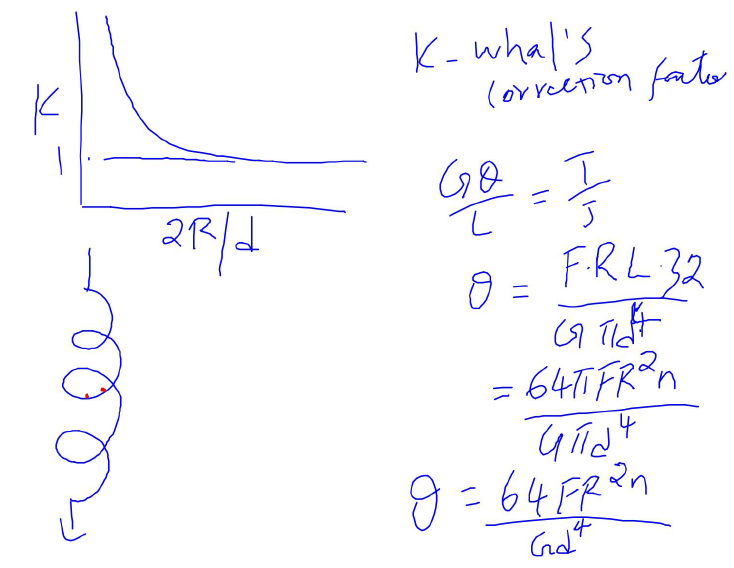 K
1
2R/d
K - whal's
correction factor
Gθ/L = T/J
θ = F.R L.32 / Gπd⁴
= 64πFR²n / Gπd⁴
θ = 64FR²n / Gd⁴